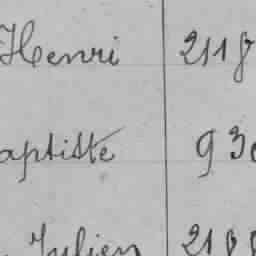 Henri 2118
aptiste 930
Julien